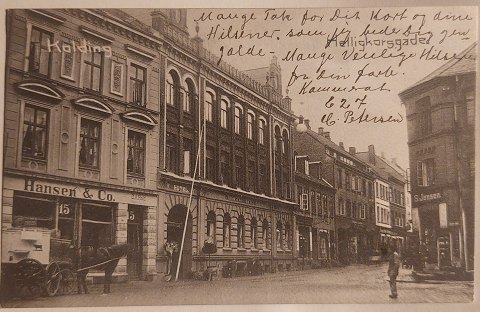 Kolding
Helligkorsgade
Mange Tak for Dit Kort og dine
Hilsener, som jeg bede Dig gen-
gælde –
Mange Venlige Hilsener
fra din forb.
Kammerat
C. Petersen
Hansen & Co.
15
15
HOTEL
S. Jensen